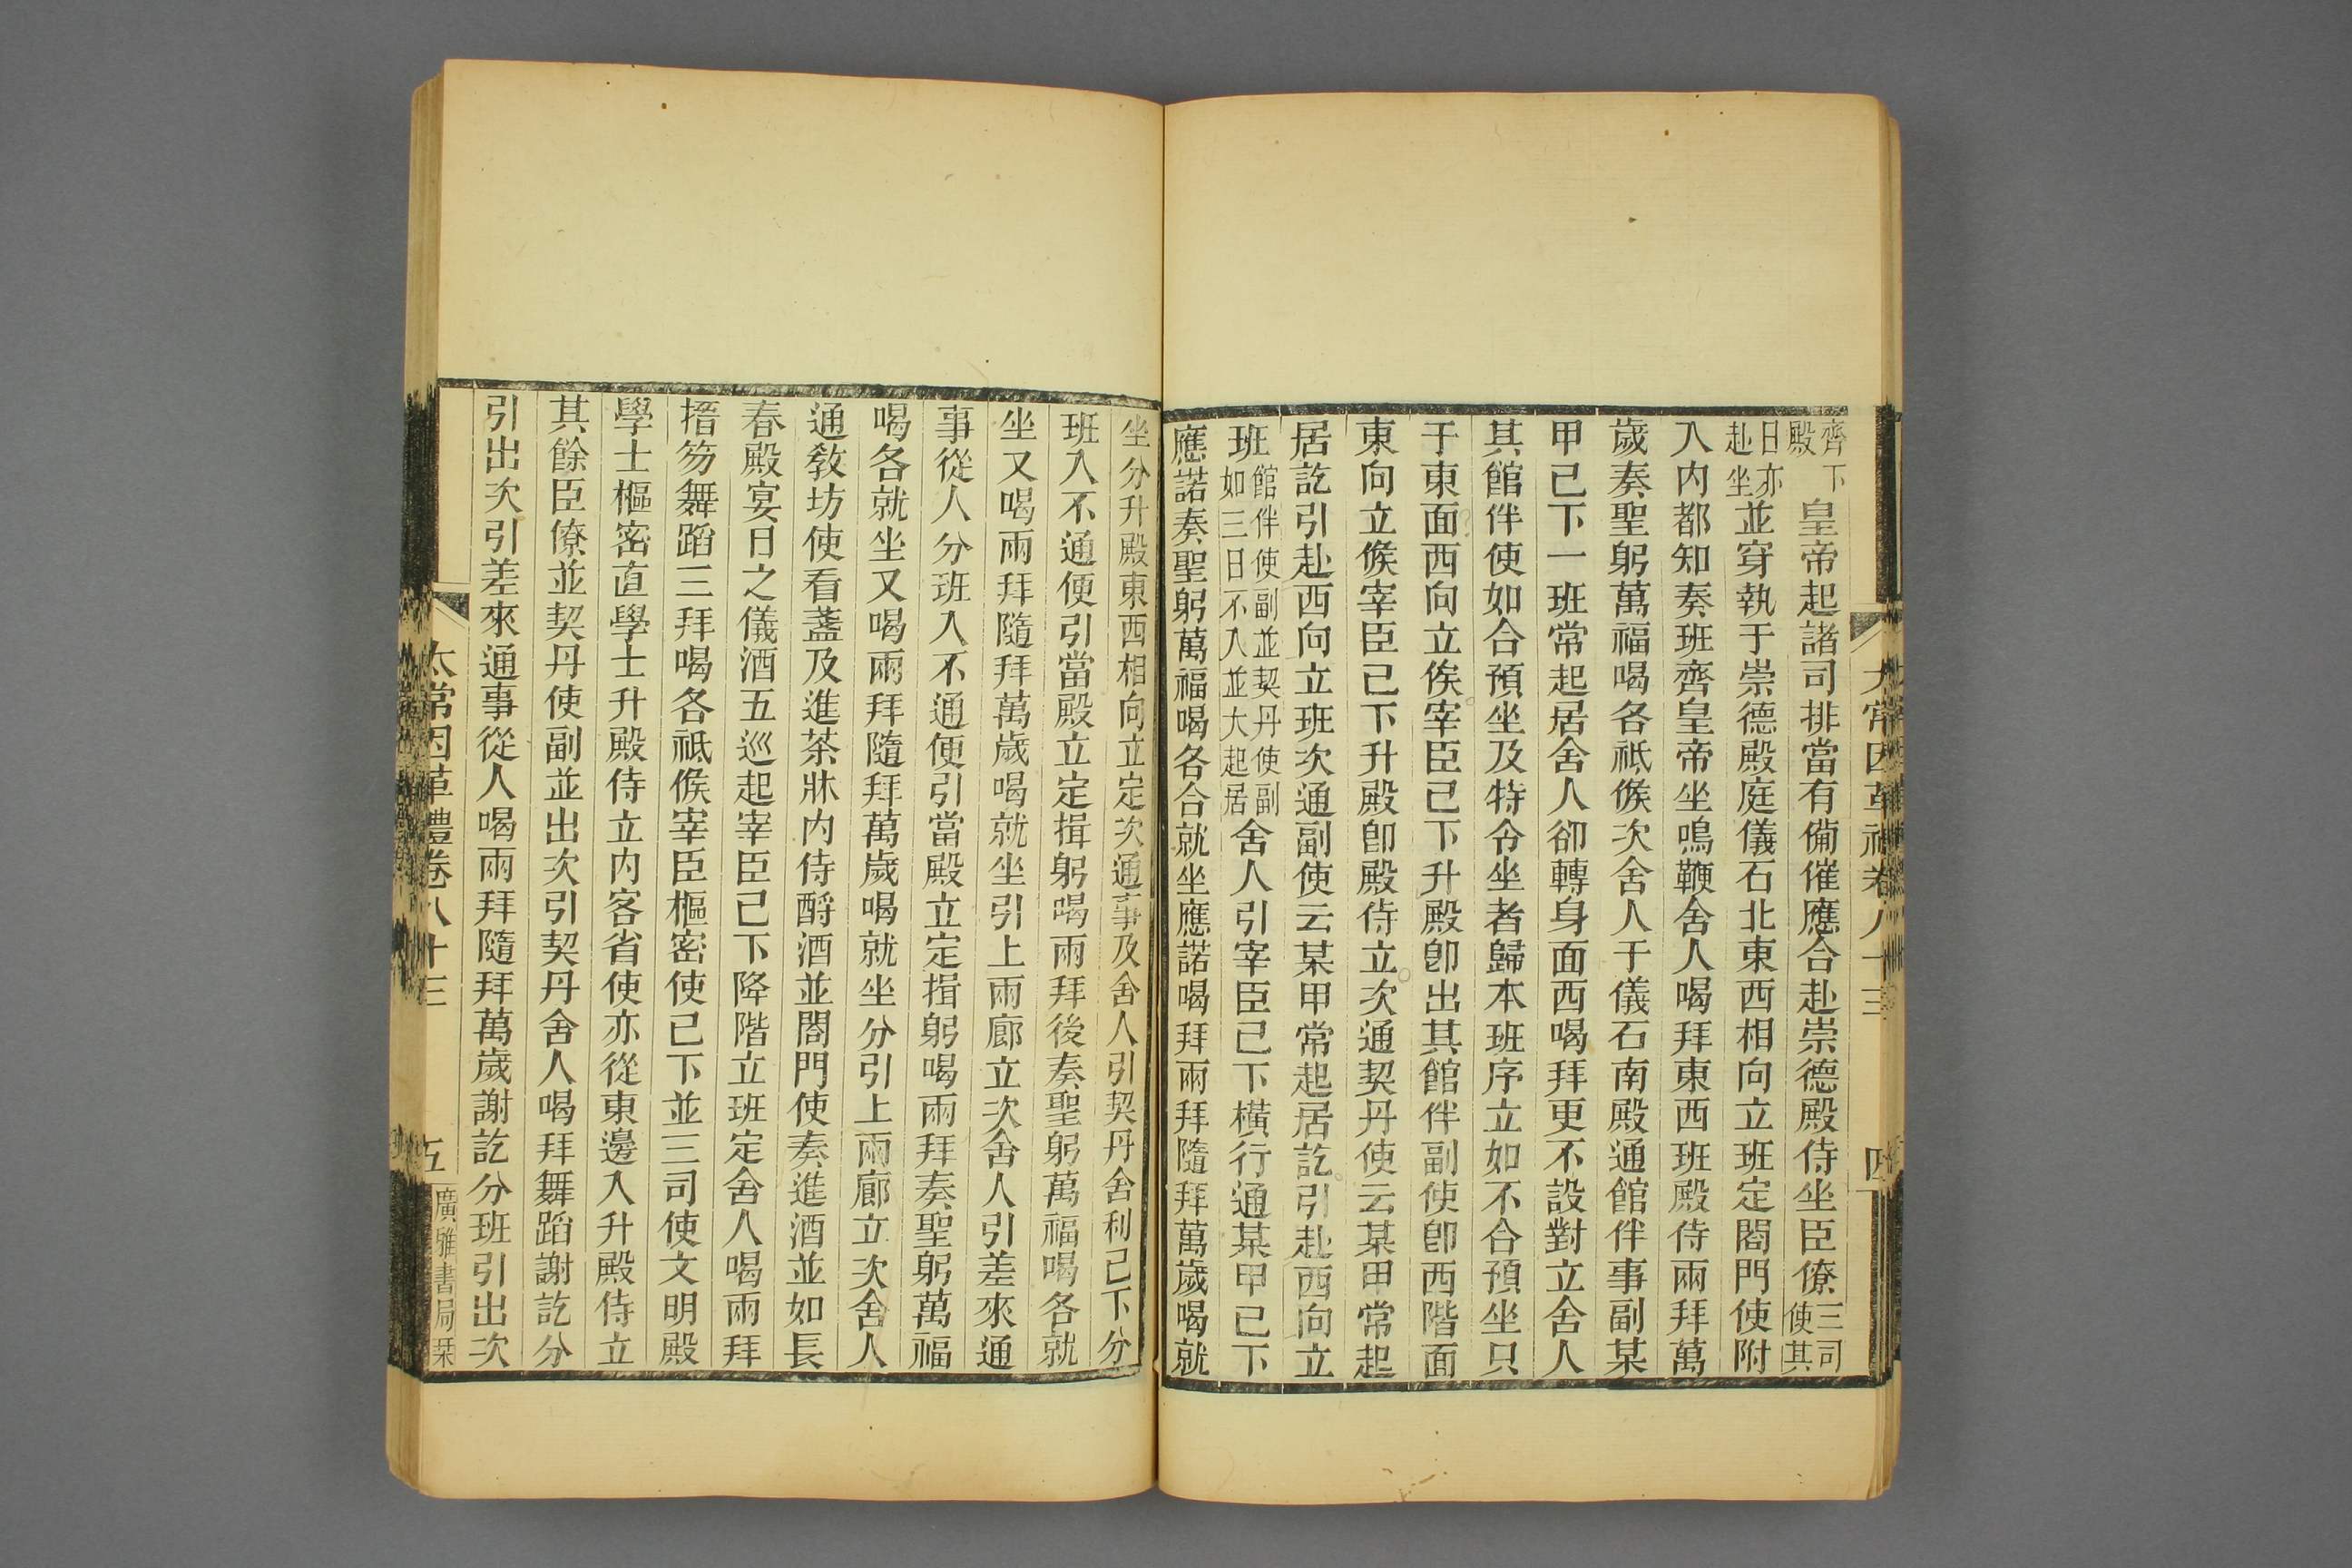 太常因革禮卷八十三
四
齊下
殿
皇帝起諸司排當有備催應合赴崇德殿侍坐臣僚
三司
使其
日亦
赴坐
並穿執于崇德殿庭儀石北東西相向立班定閤門使附
入內都知奏班齊皇帝坐鳴鞭舍人喝拜東西班殿侍兩拜萬
歲奏聖躬萬福喝各祗候次舍人于儀石南殿通館伴事副某
甲已下一班常起居舍人卻轉身面西喝拜更不設對立舍人
其館伴使如合預坐及特令坐者歸本班序立如不合預坐只
于東面西向立俟宰臣已下升殿卽出其館伴副使卽西階面
東向立候宰臣已下升殿卽殿侍立次通契丹使云某甲常起
居訖引赴西向立班次通副使云某甲常起居訖引赴西向立
班
館伴使副並契丹使副
如三日不入並大起居
舍人引宰臣已下橫行通某甲已下
應諾奏聖躬萬福喝各合就坐應諾喝拜兩拜隨拜萬歲喝就
坐分升殿東西相向立定次通事及舍人引契丹舍利已下分
班入不通便引當殿立定揖躬喝兩拜後奏聖躬萬福喝各就
坐又喝兩拜隨拜萬歲喝就坐引上兩廊立次舍人引差來通
事從人分班入不通便引當殿立定揖躬喝兩拜奏聖躬萬福
喝各就坐又喝兩拜隨拜萬歲喝就坐分引上兩廊立次舍人
通教坊使看盞及進茶牀內侍酹酒並閤門使奏進酒並如長
春殿宴日之儀酒五巡起宰臣已下降階立班定舍人喝兩拜
搢笏舞蹈三拜喝各祗候宰臣樞密使已下並三司使文明殿
學士樞密直學士升殿侍立內客省使亦從東邊入升殿侍立
其餘臣僚並契丹使副並出次引契丹舍人喝拜舞蹈謝訖分
引出次引差來通事從人喝兩拜隨拜萬歲謝訖分班引出次
太常因革禮卷八十三
五
廣雅書局栞